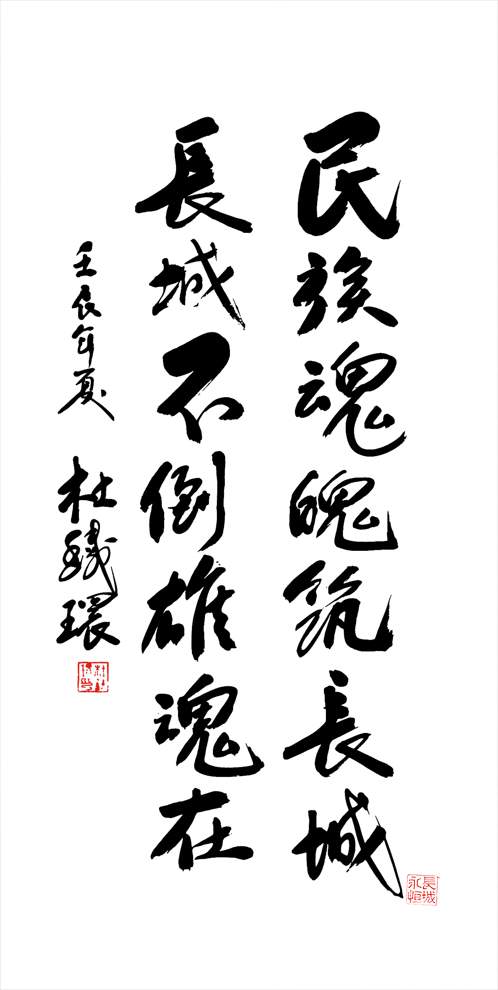 民族魂魄筑長城
長城不倒雄魂在
壬辰年夏
杜鐵環
長城永恒